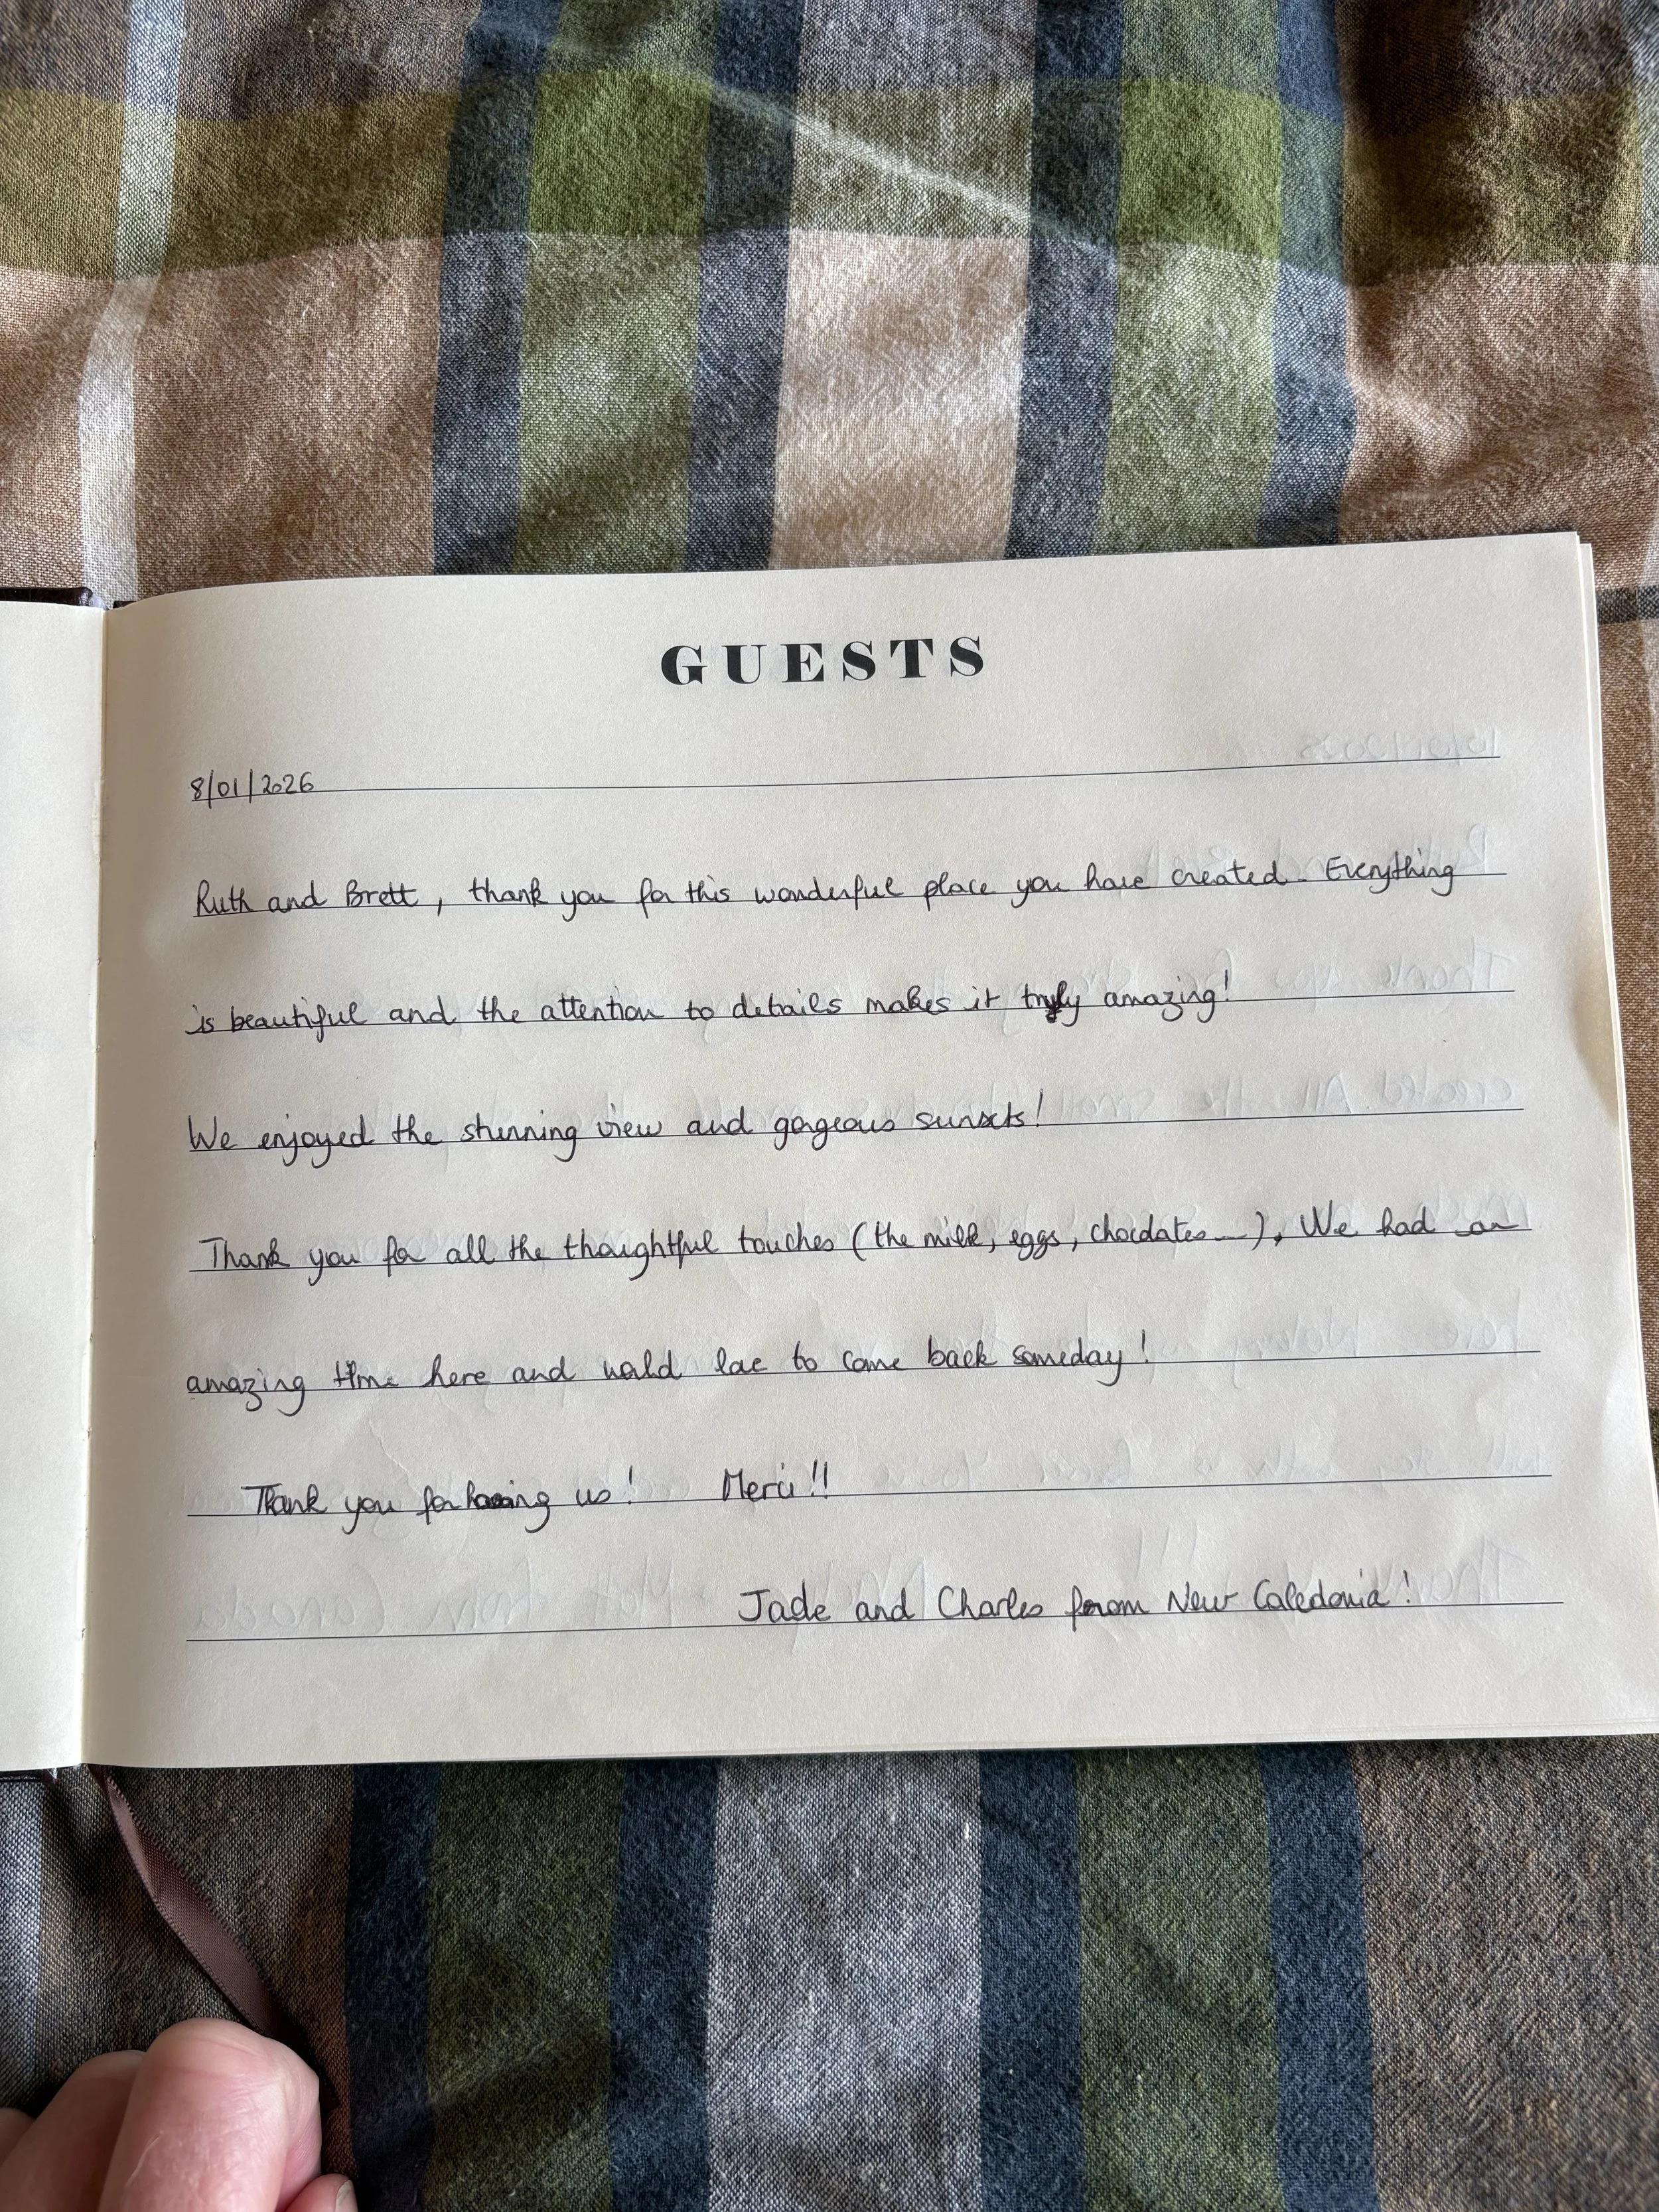 GUESTS
8/01/2026
Ruth and Brett, thank you for this wonderful place you have created. Everything
is beautiful and the attention to details makes it truly amazing!
We enjoyed the stunning view and gorgeous sunsets!
Thank you for all the thoughtful touches (the milk, eggs, chocolates...). We had an
amazing time here and would love to come back someday!
Thank you for having us! Merci!!
Jade and Charles from New Caledonia!